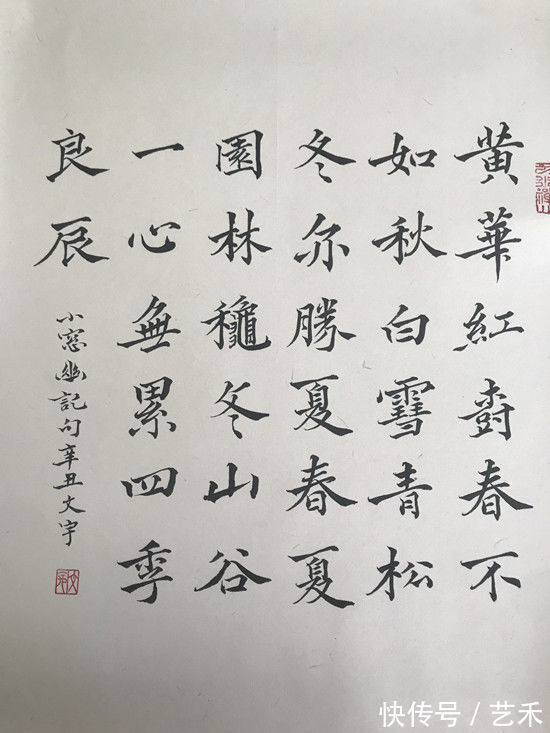 黄華紅樹春不
如秋白雪青松
冬亦勝夏春夏
園林穐冬山谷
一心無累四季
良辰
小窓幽記句辛丑文宇
快传号/艺禾